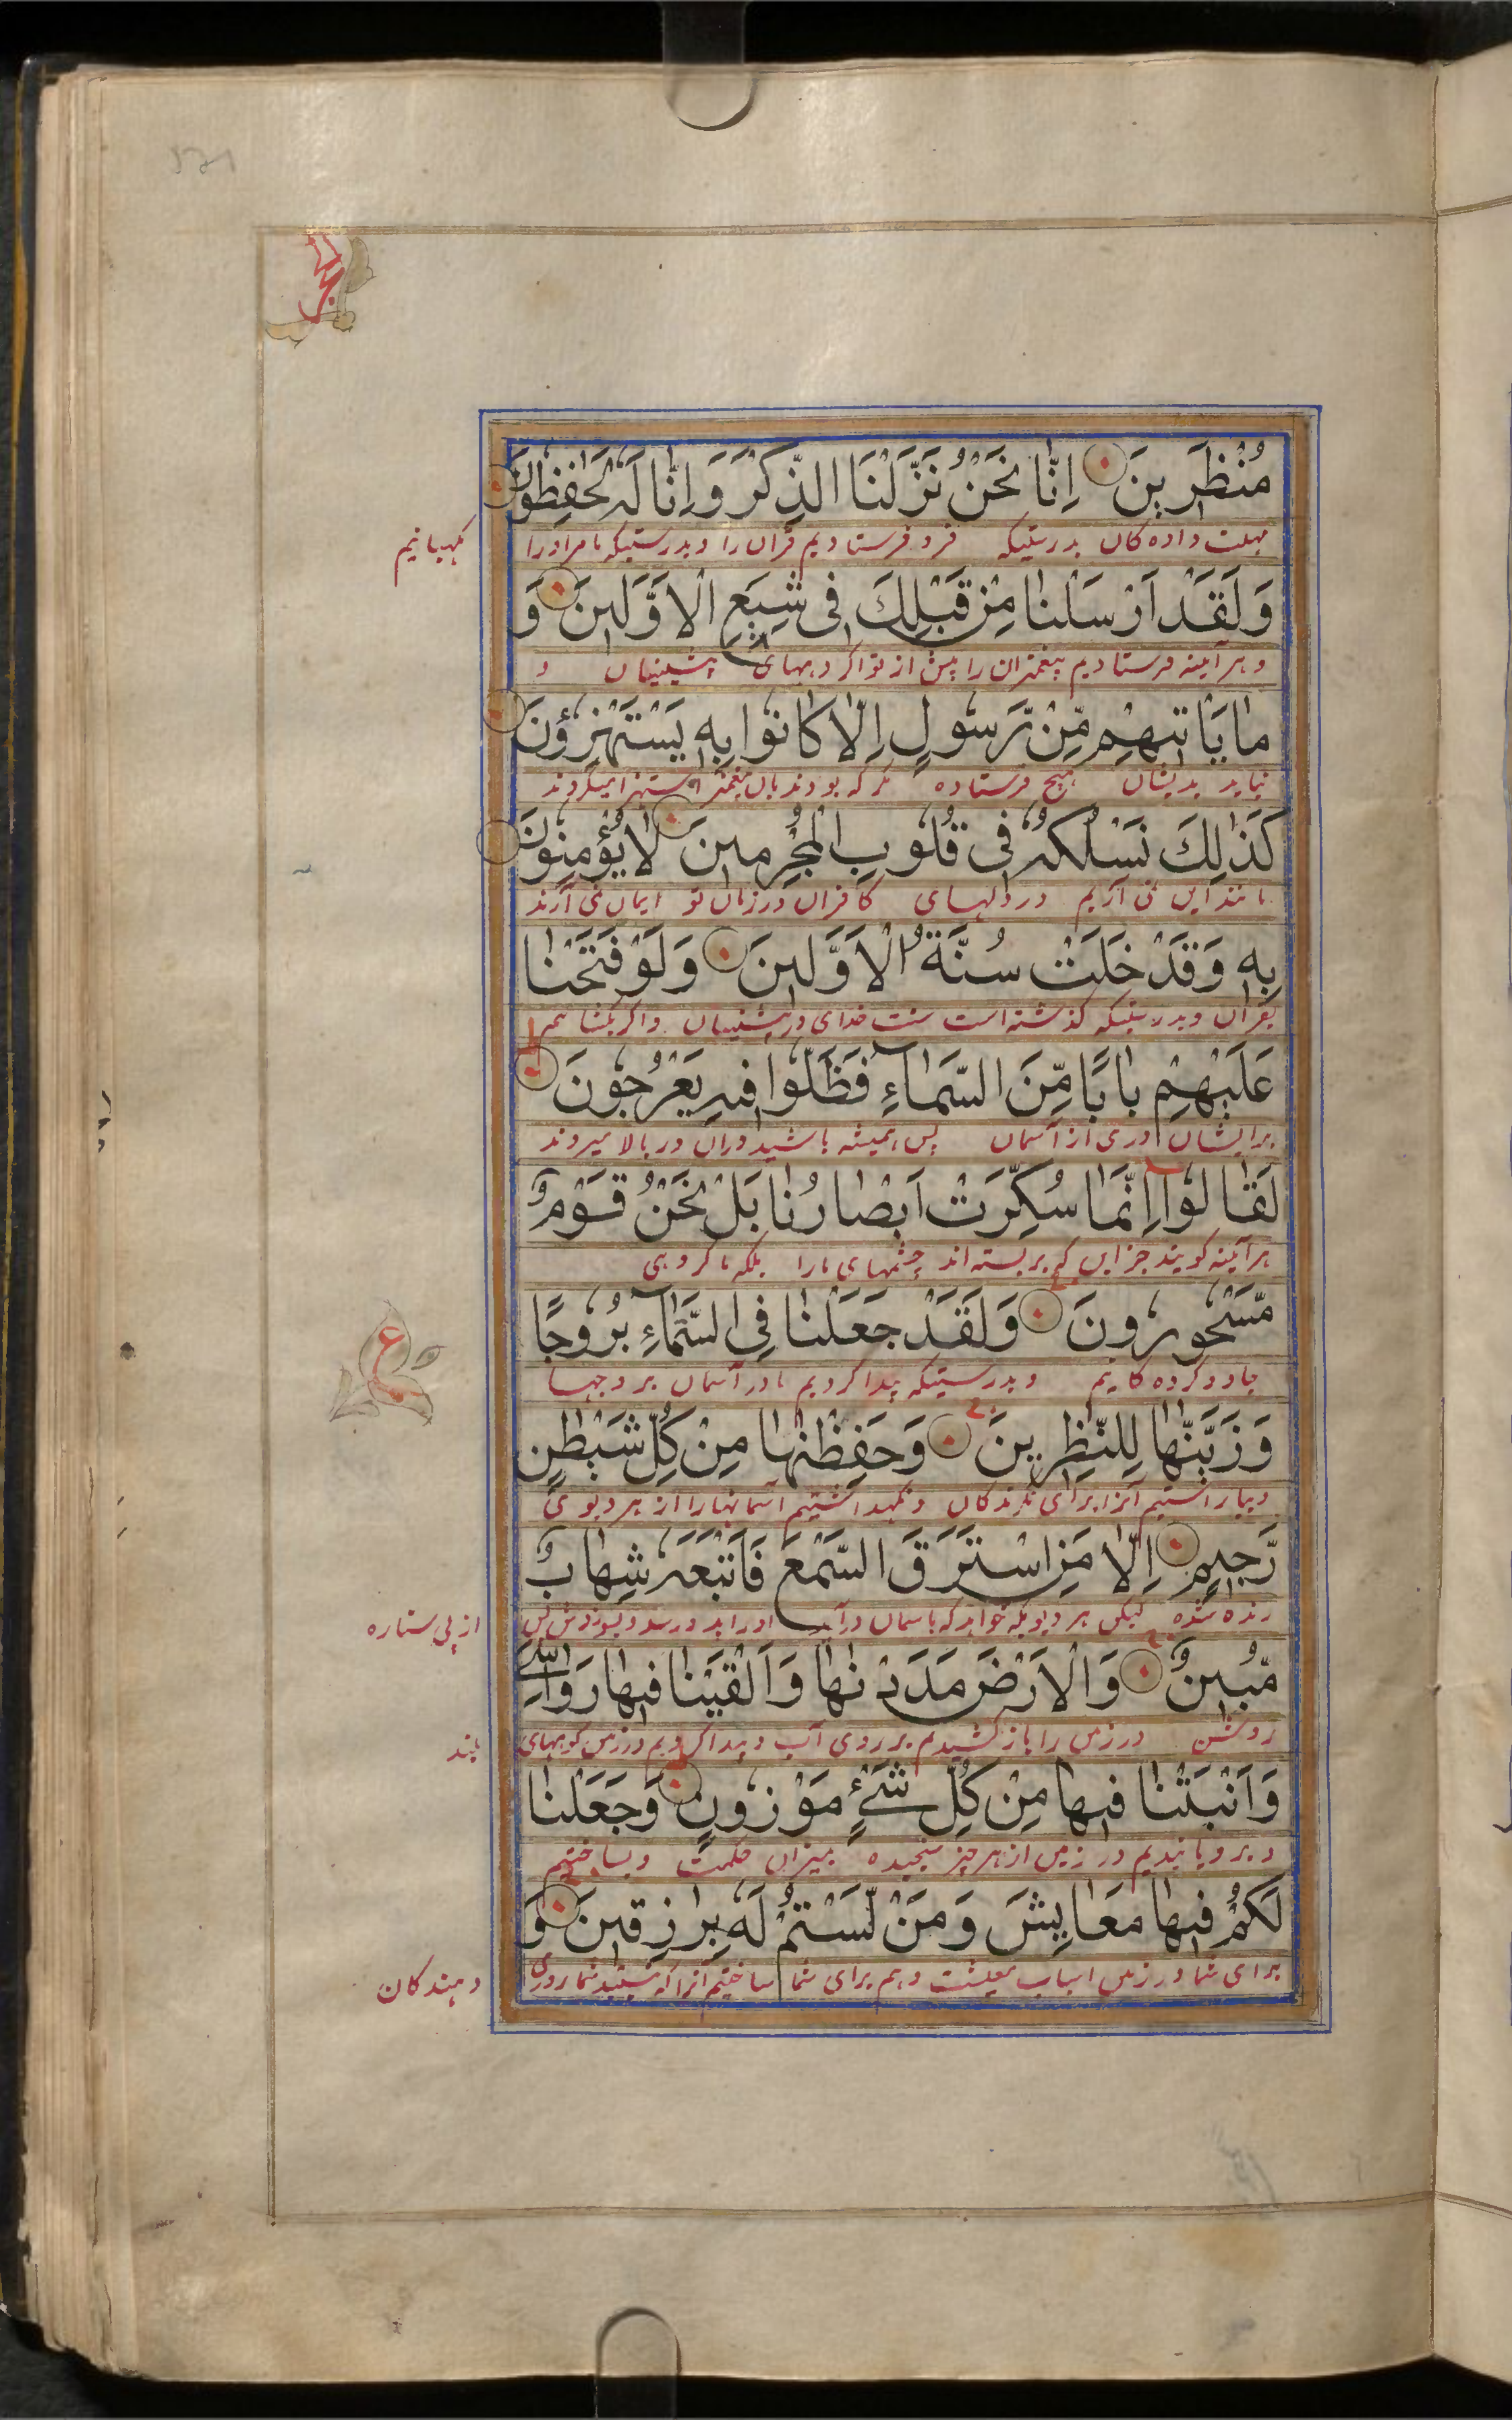 الحجر
مُنْظَرِينَ اِنَّا نَحْنُ نَزَّلْنَا الذِّكْرَ وَ اِنَّا لَهُ لَحٰفِظُونَ
مهلت داده کان بدرستیکه فرو فرستادیم قران را و بدرستیکه ما مر او را نکهبانیم
وَلَقَدْ اَرْسَلْنٰا مِنْ قَبْلِكَ فِی شِیَعِ الْاَوَّلِینَ وَ
و هر آینه فرستادیم پیغمبران را پیش از تو در کروههای پیشینیان و
مٰا یَاْتِیهِمْ مِّنْ رَّسُولٍ اِلّٰا کٰانُوا بِهِ یَسْتَهْزِؤُنَ
نیاید بدیشان هیچ فرستاده مکر که بودند بان پیغمبر استهزا میکردند
کَذٰلِكَ نَسْلُکُهُ فِی قُلُوبِ الْمُجْرِمِینَ لٰا یُؤْمِنُونَ
مانند این می آریم در دلهای کافران در زمان تو ایمان نمی آرند
بِهِ وَقَدْ خَلَتْ سُنَّةُ الْاَوَّلِینَ وَلَوْ فَتَحْنٰا
بقران و بدرستیکه کذشته است سنت خدای در پیشینیان و اکر بکشائیم
عَلَیْهِمْ بٰابًا مِّنَ السَّمٰاءِ فَظَلُّوا فِیهِ یَعْرُجُونَ
برایشان دری از آسمان پس همیشه باشید دران در بالا میروند
لَقٰالُوا اِنَّمٰا سُکِّرَتْ اَبْصٰارُنٰا بَلْ نَحْنُ قَوْمٌ
هر آینه کویند جز این که بر بسته اند چشمهای ما را بلکه ما کروهی
مَّسْحُورُونَ وَلَقَدْ جَعَلْنٰا فِی السَّمٰاءِ بُرُوجًا
جادو کرده کانیم و بدرستیکه پیدا کردیم ما در آسمان بروجها
ع
وَ زَیَّنّٰهٰا لِلنّٰظِرِینَ وَحَفِظْنٰهٰا مِنْ کُلِّ شَیْطٰنٍ
و بیاراستیم آنرا برای نکرندکان و نکهداشتیم آسمانها را از هر دیوی
رَّجِیمٍ اِلّٰا مَنِ اسْتَرَقَ السَّمْعَ فَاَتْبَعَهُ شِهٰابٌ
رنده شده لیکن هر دیویکه خواهد که باسمان درآید از پی ستاره
مُّبِینٌ وَالْاَرْضَ مَدَدْنٰهٰا وَاَلْقَیْنٰا فِیهٰا رَوٰاسِیَ
روشن و زمین را باز کشیدیم بر روی آب و پیدا کردیم در زمین کوههای بلند
وَاَنْبَتْنٰا فِیهٰا مِنْ کُلِّ شَیْءٍ مَوْزُونٍ وَجَعَلْنٰا
و برویانیدیم در زمین از هر چیز سنجیده بمیزان حکمت و بساختیم
لَکُمْ فِیهٰا مَعٰایِشَ وَمَنْ لَّسْتُمْ لَهُ بِرٰازِقِینَ وَ
برای شما در زمین اسباب معیشت و هم برای شما ساختیم آنرا که نیستید شما روزی دهندکان